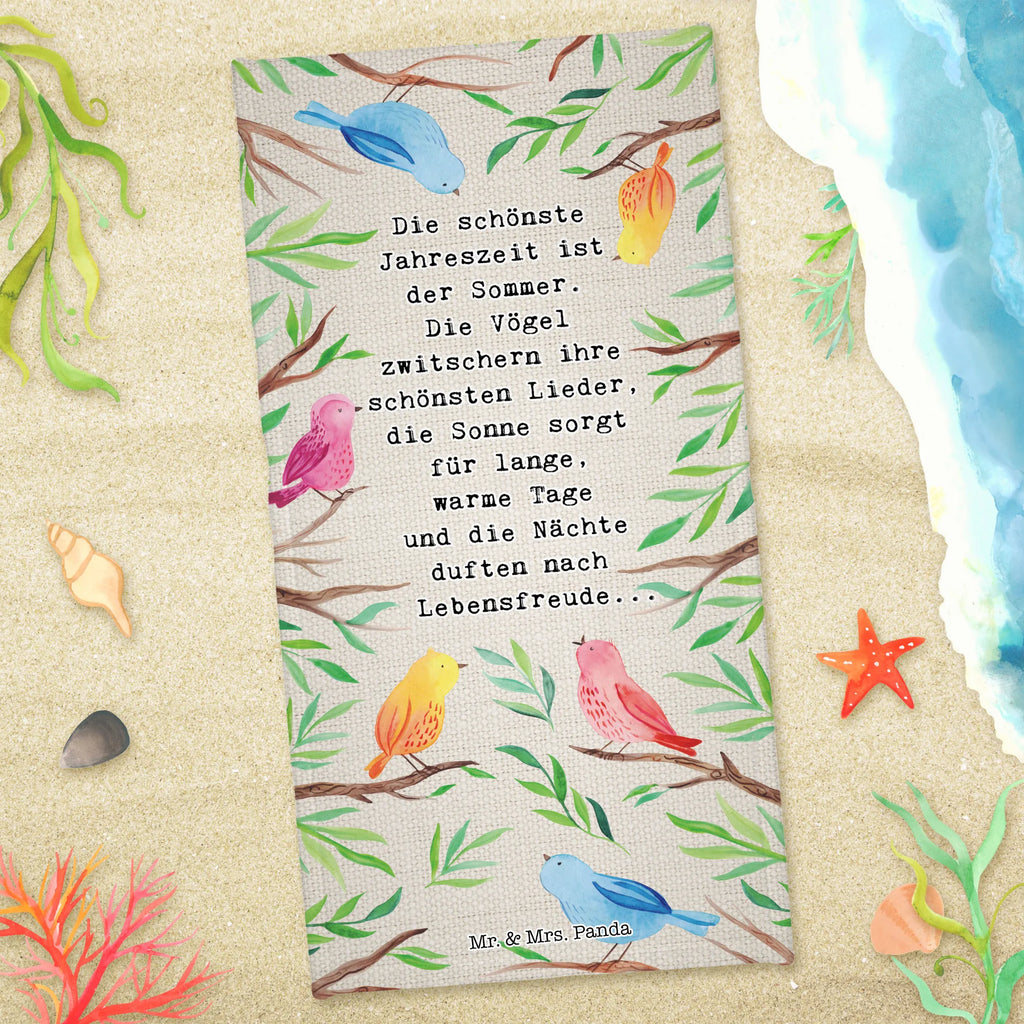 Die schönste
Jahreszeit ist
der Sommer.
Die Vögel
zwitschern ihre
schönsten Lieder,
die Sonne sorgt
für lange,
warme Tage
und die Nächte
duften nach
Lebensfreude...
Mr. & Mrs. Panda